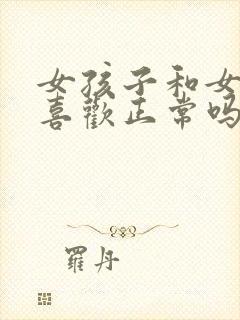 女孩子和女
喜歡正常吗
羅丹